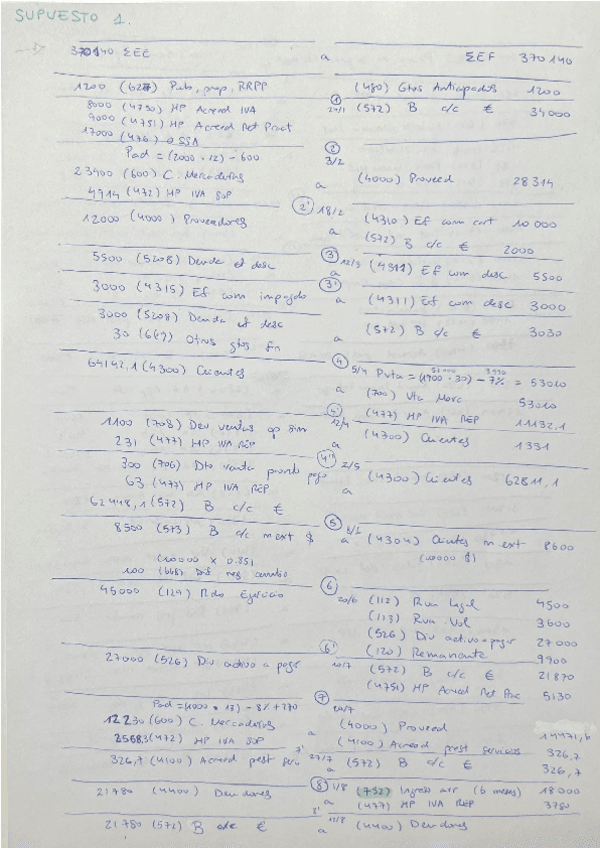 SUPUESTO 1.
370140 ΣEE a ΣEF 370140
1200 (627) Pub, prop, RRPP (480) Gtos Anticipados 1200
8000 (4750) HP Acreed IVA ① 20/1 (572) B c/c € 34000
9000 (4751) HP Acreed Ret Pract
17000 (476) O SSA
Pad = (2000 · 12) - 600 ② 3/2
23400 (600) C. Mercaderías a (4000) Proveed 28314
4914 (472) HP IVA SOP
12000 (4000) Proveedores ②' 18/2 (4310) Ef com cart 10000
a (572) B c/c € 2000
5500 (5208) Deuda ef desc ③ 12/3 a (4311) Ef com desc 5500
3000 (4315) Ef com impagado ③' a (4311) Ef com desc 3000
3000 (5208) Deuda ef desc a (572) B c/c € 3030
30 (669) Otros gtos fn
64142,1 (4300) Clientes ④ 5/4 Pvta = (1900 · 30) - 7% = 53010
57000 3990
a (700) Vta Merc 53010
(477) HP IVA REP 11132,1
1100 (708) Dev ventas op sim ④' 12/4 a (4300) Clientes 1331
231 (477) HP IVA REP
300 (706) Dto venta pronto pago ④'' 2/5 a (4300) Clientes 62811,1
63 (477) HP IVA REP
62448,1 (572) B c/c €
8500 (573) B c/c m ext $ ⑤ a (4304) Clientes m ext 8600
(10000 x 0.85) (10000 $)
100 (668) Dif neg cambio
45000 (129) Rdo Ejercicio ⑥ 20/6 (112) Rva Legal 4500
(113) Rva Vol 3600
(526) Div activo a pagar 27000
(120) Remanente 9900
27000 (526) Div activo a pagar ⑥' 10/7 (572) B c/c € 21870
(4751) HP Acreed Ret Prac 5130
Pad = (1000 · 13) - 8% + 270 ⑦ 20/7
12230 (600) C. Mercaderías a (4000) Proveed 14471,6
2568,3 (472) HP IVA SOP (4100) Acreed prest servicios 326,7
326,7 (4100) Acreed prest serv 7' 27/7 a (572) B c/c € 326,7
21780 (4400) Deudores ⑧ 1/8 a (752) Ingreso arr (6 meses) 18000
(477) HP IVA REP 3780
21780 (572) B c/c € 8' 11/8 a (4400) Deudores